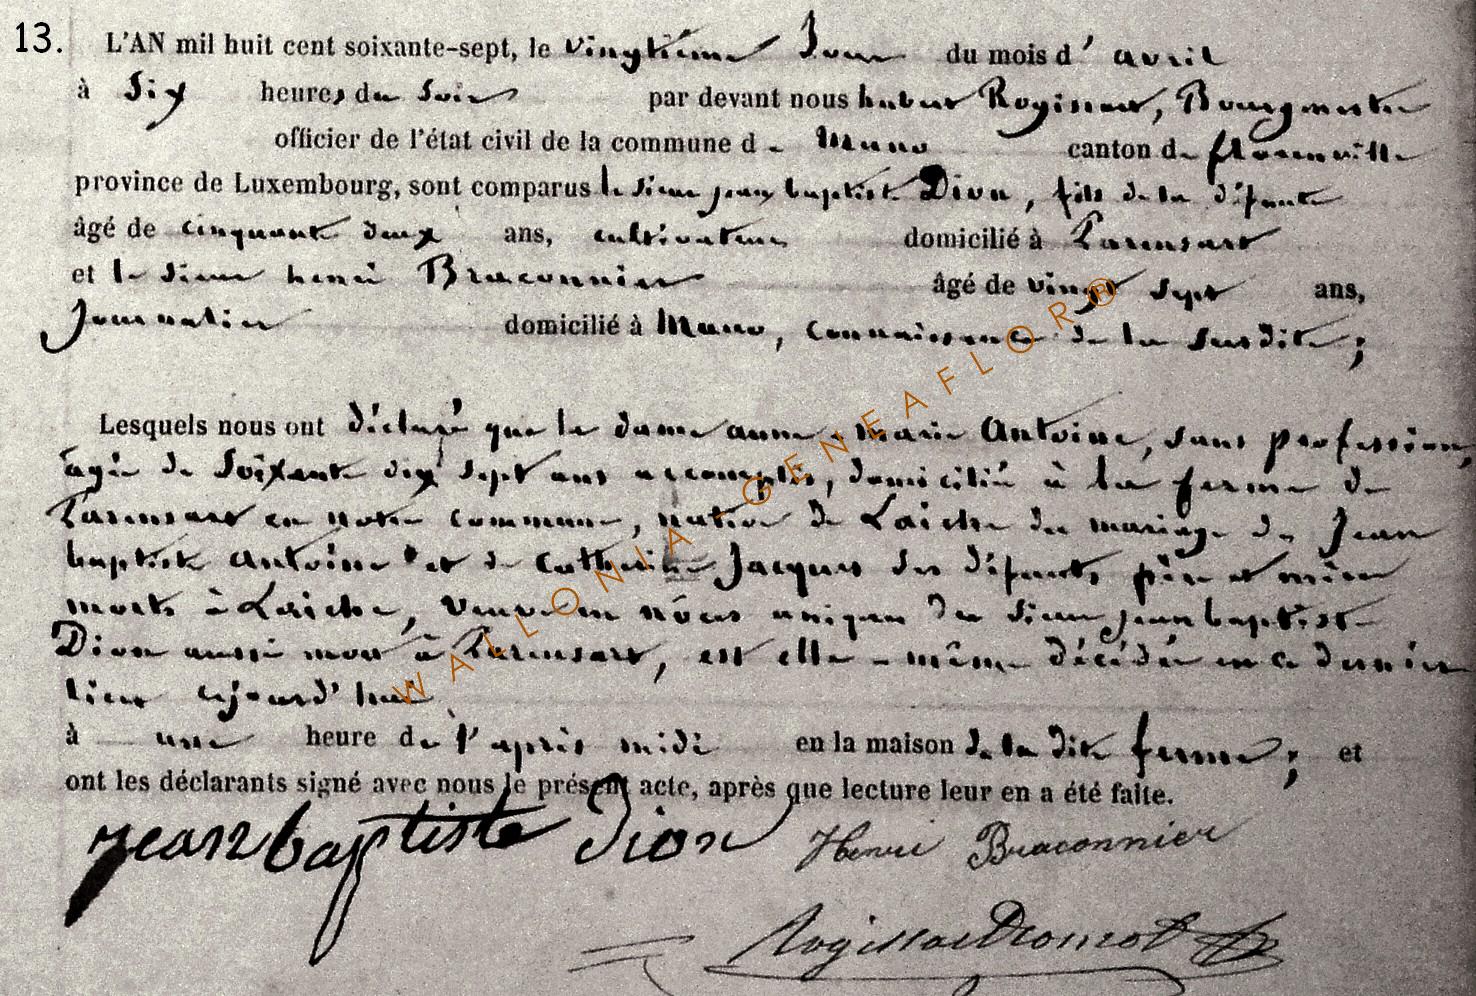 13.
L'AN mil huit cent soixante-sept, le vingtième jour du mois d'avril
à six heures du soir par devant nous hubert Rogissart, Bourgmestre
officier de l'état civil de la commune de Muno canton de florenville
province de Luxembourg, sont comparus le sieur jean baptiste Dion, fils de la défunte
âgé de cinquante deux ans, cultivateur domicilié à Lavensart
et le sieur henri Braconnier âgé de vingt sept ans,
Journalier domicilié à Muno, connaissance de la susdite;
Lesquels nous ont déclaré que la dame anne-marie Antoine, sans profession,
agée de soixante dix sept ans accomplis, domiciliée à la ferme de
Lavensart en notre commune, native de Laiche du mariage de Jean
baptiste Antoine et de Catherine Jacques des défunts, père et mère
morts à Laiche, veuve en nôces uniques du sieur jean baptiste
Dion aussi mort à Lavensart, est elle-même décédée en ce dernier
lieu aujourd'hui
à une heure de l'après midi en la maison de la dite ferme; et
ont les déclarants signé avec nous le présent acte, après que lecture leur en a été faite.
jean baptiste dion Henri Braconnier
Rogissart
WALLONIA-GENEAFLOR®